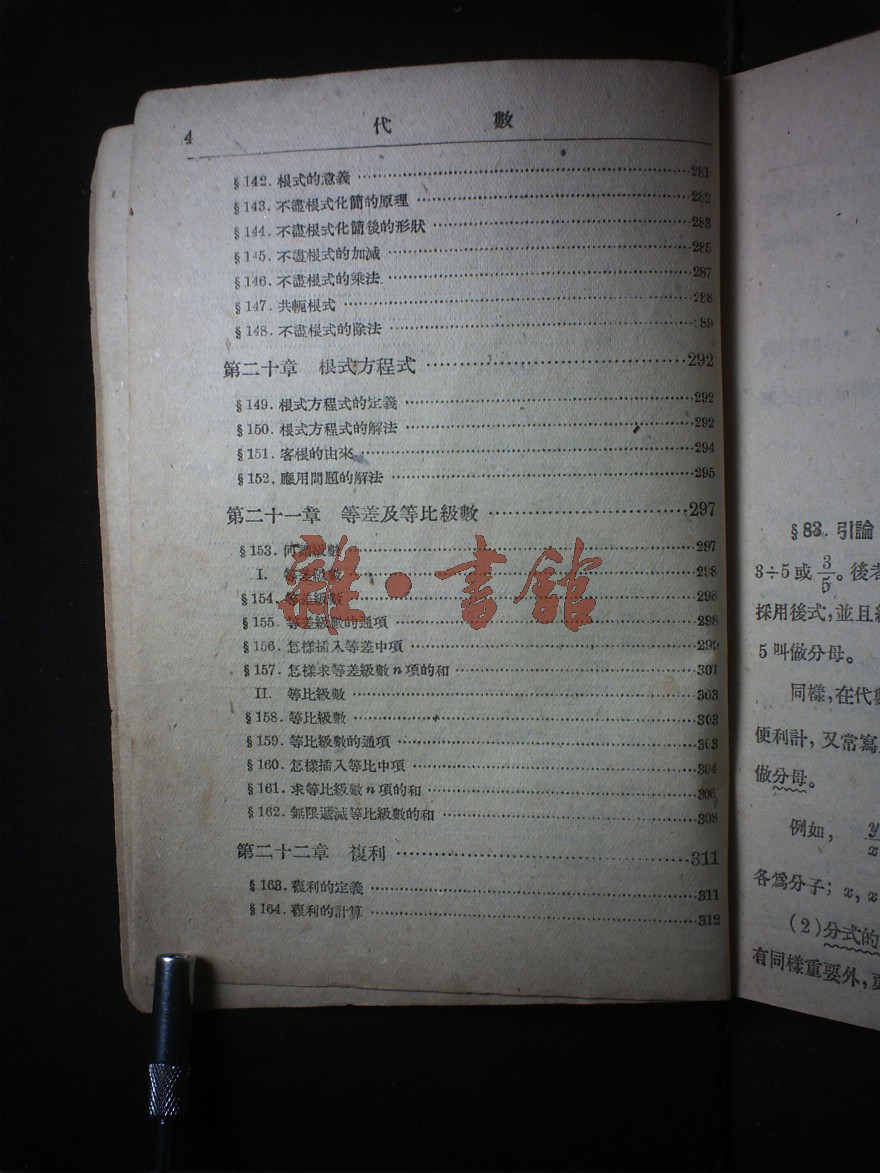 4 代 數
§142. 根式的意義 281
§143. 不盡根式化簡的原理 282
§144. 不盡根式化簡後的形狀 283
§145. 不盡根式的加減 285
§146. 不盡根式的乘法 287
§147. 共軛根式 288
§148. 不盡根式的除法 89
第二十章 根式方程式 292
§149. 根式方程式的定義 292
§150. 根式方程式的解法 292
§151. 客根的由來 294
§152. 應用問題的解法 295
第二十一章 等差及等比級數 297
§153. 何謂級數 297
I. 等差級數 298
§154. 等差級數 298
§155. 等差級數的通項 298
§156. 怎樣插入等差中項 299
§157. 怎樣求等差級數n項的和 301
II. 等比級數 303
§158. 等比級數 303
§159. 等比級數的通項 303
§160. 怎樣插入等比中項 304
§161. 求等比級數n項的和 306
§162. 無限遞減等比級數的和 308
第二十二章 複利 311
§163. 複利的定義 311
§164. 複利的計算 312
雜·書館
§83. 引論
3÷5或3/5。後者
採用後式,並且
5叫做分母。
同樣,在代數
便利計,又常寫
做分母。
例如, y/x
各爲分子; x, x
(2)分式的
有同樣重要外,